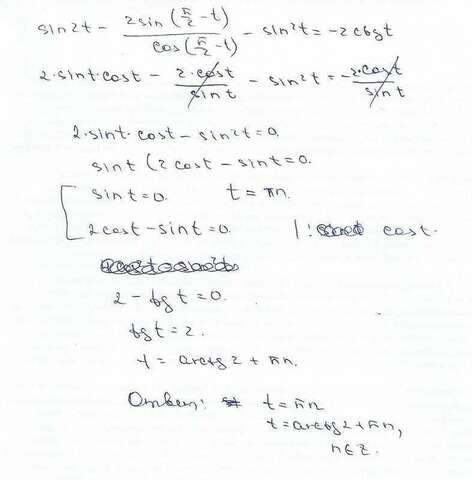 sin2t - 2sin(π/2 - t)/cos(π/2 - t) - sin²t = -2ctgt
2·sint·cost - 2·cost/sint - sin²t = -2·cost/sint
2·sint·cost - sin²t = 0.
sint(2cost - sint = 0.
sint = 0. t = πn.
2cost - sint = 0. |: cost.
2 - tgt = 0.
tgt = 2.
t = arctg2 + πn.
Ответ: t = πn
t = arctg2 + πn,
n∈Z.